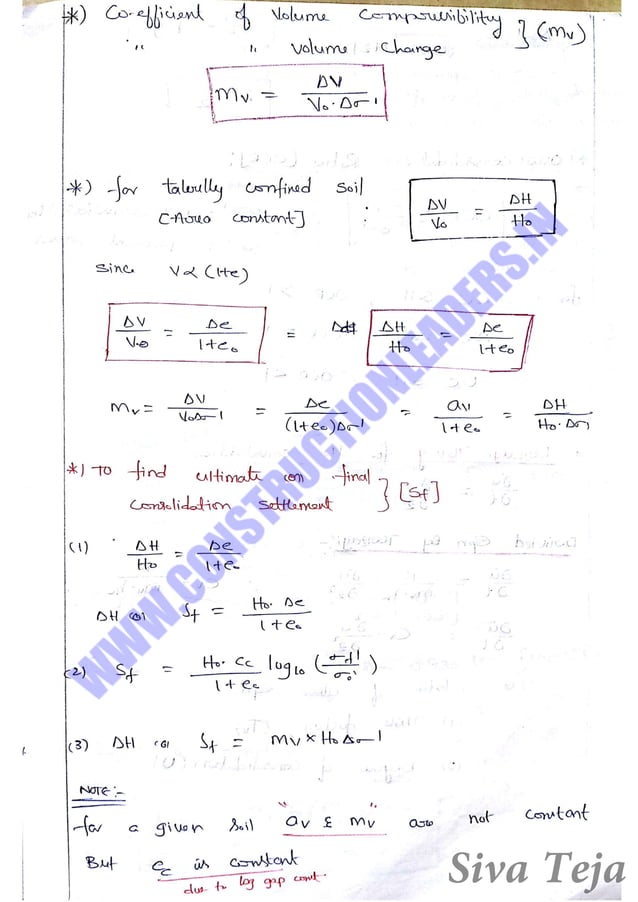 *) Co-efficient of Volume Compressibility } (mv)
" " Volume Change
mv = ΔV / V₀·Δσ'
*) for laterally confined soil : ΔV/V₀ = ΔH/H₀
[-Area constant]
Since V ∝ (1+e)
ΔV/V₀ = Δe/1+e₀ = ΔH/H₀ = Δe/1+e₀
mv = ΔV/V₀Δσ' = Δe/(1+e₀)Δσ' = av/1+e₀ = ΔH/H₀·Δσ'
*) To find ultimate (or) final } [Sf]
consolidation settlement
(1) ΔH/H₀ = Δe/1+e₀
ΔH (or) Sf = H₀·Δe/1+e₀
(2) Sf = H₀·Cc/1+e₀ log₁₀ (σf'/σ₀')
(3) ΔH (or) Sf = mv × H₀ Δσ'
NOTE:-
for a given soil "av & mv" are not constant
But Cc is constant
due to log gap const.
Siva Teja
WWW.CONSTRUCTIONLEADERS.IN